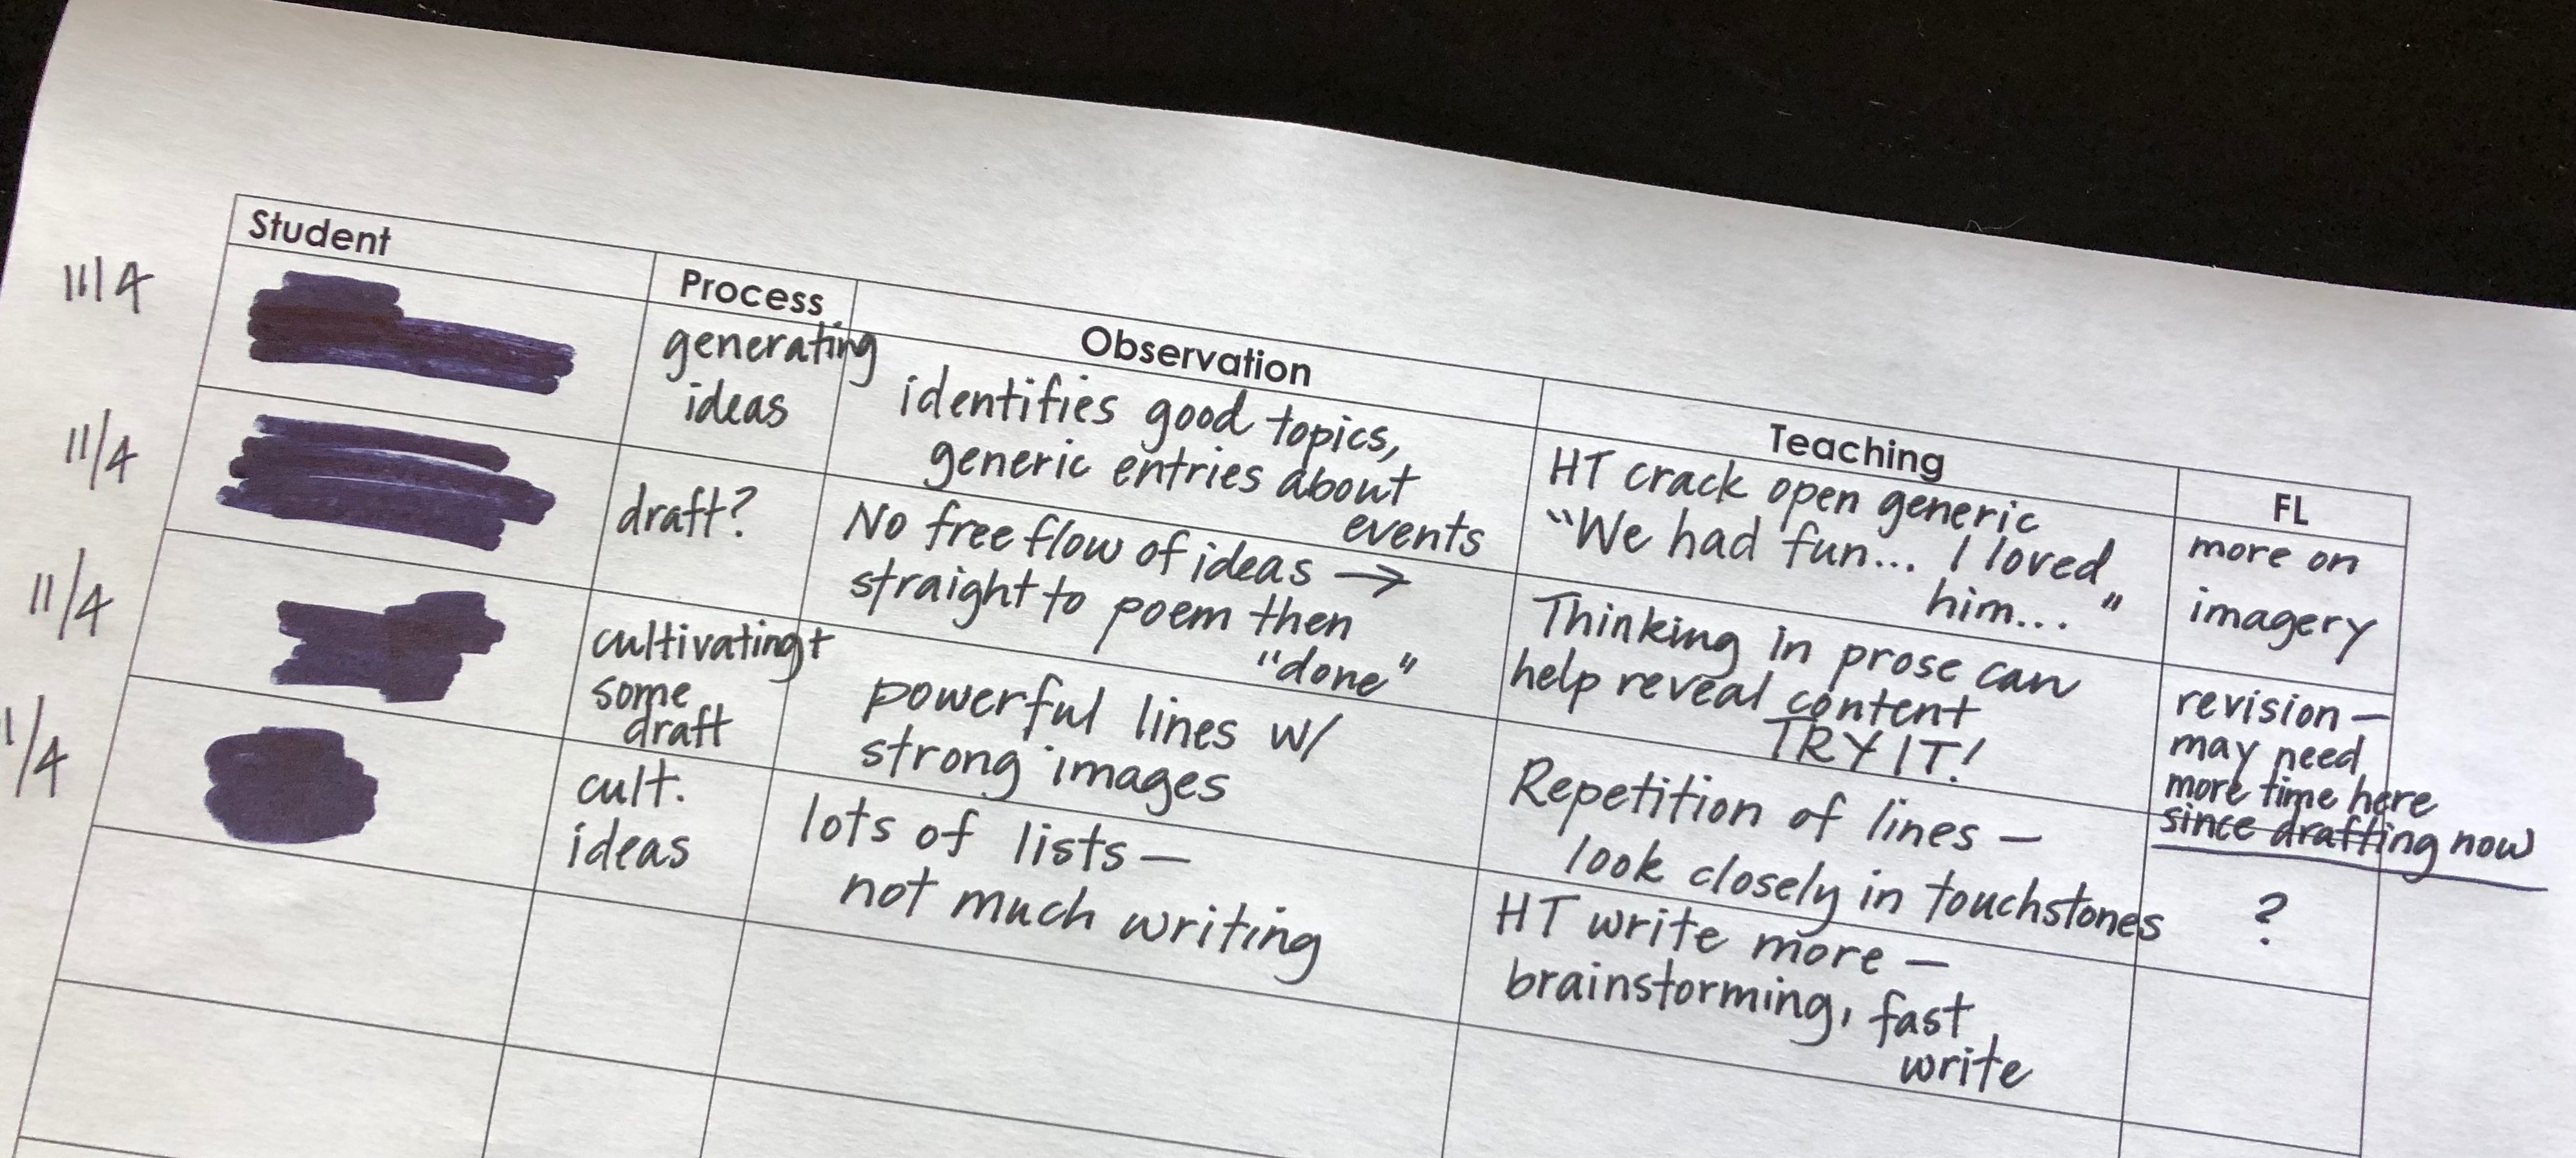 Student
Process
Observation
Teaching
FL
11/4
generating
ideas
identifies good topics,
generic entries about
events
HT crack open generic
"We had fun... I loved
him..."
more on
imagery
11/4
draft?
No free flow of ideas →
straight to poem then
"done"
Thinking in prose can
help reveal content
TRY IT!
revision —
may need
more time here
since drafting now
11/4
cultivating +
some
draft
powerful lines w/
strong images
Repetition of lines —
look closely in touchstones
?
1/4
cult.
ideas
lots of lists —
not much writing
HT write more —
brainstorming, fast
write